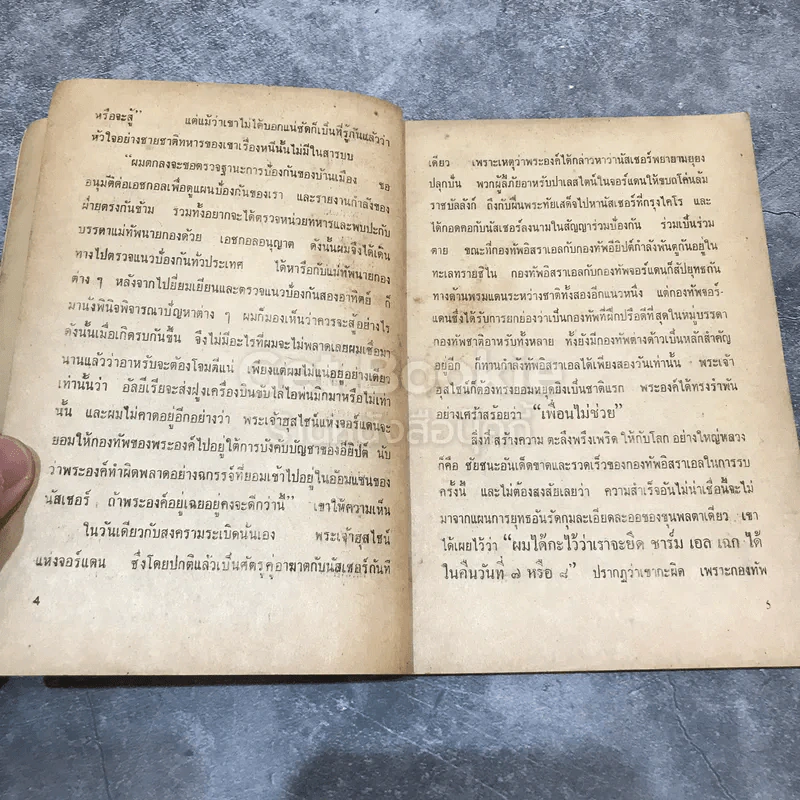 หรือจะสู้” แต่แม้ว่าเขาไม่ได้บอกแน่ชัดก็เป็นที่รู้กันแล้วว่า
หัวใจอย่างชายชาติทหารของเขาเรื่องหนีนั้นไม่มีในสารบบ
“ผมตกลงจะขอตรวจฐานะการป้องกันของบ้านเมือง ขอ
อนุมัติต่อเอชกอลเพื่อดูแผนป้องกันของเรา และรายงานกำลังของ
ฝ่ายตรงกันข้าม รวมทั้งอยากจะได้ตรวจหน่วยทหารและพบปะกับ
บรรดาแม่ทัพนายกองด้วย เอชกอลอนุญาต ดังนั้นผมจึงได้เดิน
ทางไปตรวจแนวป้องกันทั่วประเทศ ได้หารือกับแม่ทัพนายกอง
ต่าง ๆ หลังจากไปเยี่ยมเยียนและตรวจแนวป้องกันสองอาทิตย์ ก็
มานั่งพินิจพิจารณาปัญหาต่าง ๆ ผมก็มองเห็นว่าควรจะสู้อย่างไร
ดังนั้นเมื่อเกิดรบกันขึ้น จึงไม่มีอะไรที่ผมจะไม่พลาดเลยผมเชื่อมา
นานแล้วว่าอาหรับจะต้องโจมตีแน่ เพียงแต่ผมไม่แน่อยู่อย่างเดียว
เท่านั้นว่า อัลยีเรียจะส่งฝูงเครื่องบินขับไล่ไอพ่นมิกมาหรือไม่เท่า
นั้น และผมไม่คาดอยู่อีกอย่างว่า พระเจ้าฮุสไซน์แห่งจอร์แดนจะ
ยอมให้กองทัพของพระองค์ไปอยู่ใต้การบังคับบัญชาของอียิปต์ นับ
ว่าพระองค์ทำผิดพลาดอย่างฉกรรจ์ที่ยอมเข้าไปอยู่ในอ้อมแขนของ
นัสเชอร์ ถ้าพระองค์อยู่เฉยอยู่คงจะดีกว่านี้” เขาให้ความเห็น
ในวันเดียวกับสงครามระเบิดนั่นเอง พระเจ้าฮุสไซน์
แห่งจอร์แดน ซึ่งโดยปกติแล้วเป็นศัตรูคู่อาฆาตกับนัสเชอร์กันที
4
เดียว เพราะเหตุว่าพระองค์ได้กล่าวหาว่านัสเชอร์พยายามยุยง
ปลุกปั่น พวกผู้ลี้ภัยอาหรับปาเลสไตน์ในจอร์แดนให้ขบถโค่นล้ม
ราชบัลลังก์ ถึงกับฝืนพระทัยเสด็จไปหานัสเชอร์ที่กรุงไคโร และ
ได้กอดคอกับนัสเชอร์ลงนามในสัญญาร่วมป้องกัน ร่วมเป็นร่วม
ตาย ขณะที่กองทัพอิสราเอลกับกองทัพอียิปต์กำลังพันตูกันอยู่ใน
ทะเลทรายซีใน กองทัพอิสราเอลกับกองทัพจอร์แดนก็สัปยุทธกัน
ทางด้านพรมแดนระหว่างชาติทั้งสองอีกแนวหนึ่ง แต่กองทัพจอร์-
แดนซึ่งได้รับการยกย่องว่าเป็นกองทัพที่ฝึกปรือดีที่สุดในหมู่บรรดา
กองทัพชาติอาหรับทั้งหลาย ทั้งยังมีกองทัพต่างด้าวเป็นหลักสำคัญ
อยู่อีก ก็ทานกำลังทัพอิสราเอลได้เพียงสองวันเท่านั้น พระเจ้า
ฮุสไซน์ก็ต้องทรงยอมหยุดยิงเป็นชาติแรก พระองค์ได้ทรงรำพัน
อย่างเศร้าสร้อยว่า “เพื่อนไม่ช่วย”
สิ่งที่ สร้างความ ตะลึงพรึงเพริด ให้กับโลก อย่างใหญ่หลวง
ก็คือ ชัยชนะอันเด็ดขาดและรวดเร็วของกองทัพอิสราเอลในการรบ
ครั้งนี้ และไม่ต้องสงสัยเลยว่า ความสำเร็จอันไม่น่าเชื่อนี้จะไม่
มาจากแผนการยุทธอันรัดกุมละเอียดละออของขุนพลตาเดียว เขา
ได้เผยไว้ว่า “ผมได้กะไว้ว่าเราจะยึด ชาร์ม เอล เฉก ได้
ในคืนวันที่ ๗ หรือ ๘” ปรากฏว่าเขากะผิด เพราะกองทัพ
5